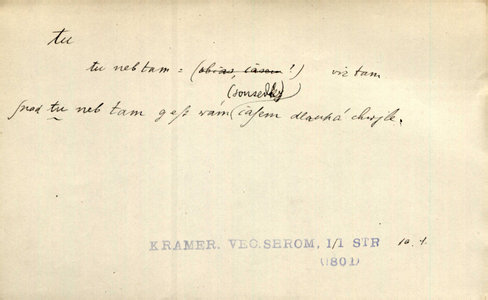 tu
tu neb tam = (občas, časem!) viz tam
(sousedky)
snad tu neb tam gest wám časem dlauhá chwjle.
KRAMER. VEC.SEROM, 1/1 STR 10.1.
(1801)